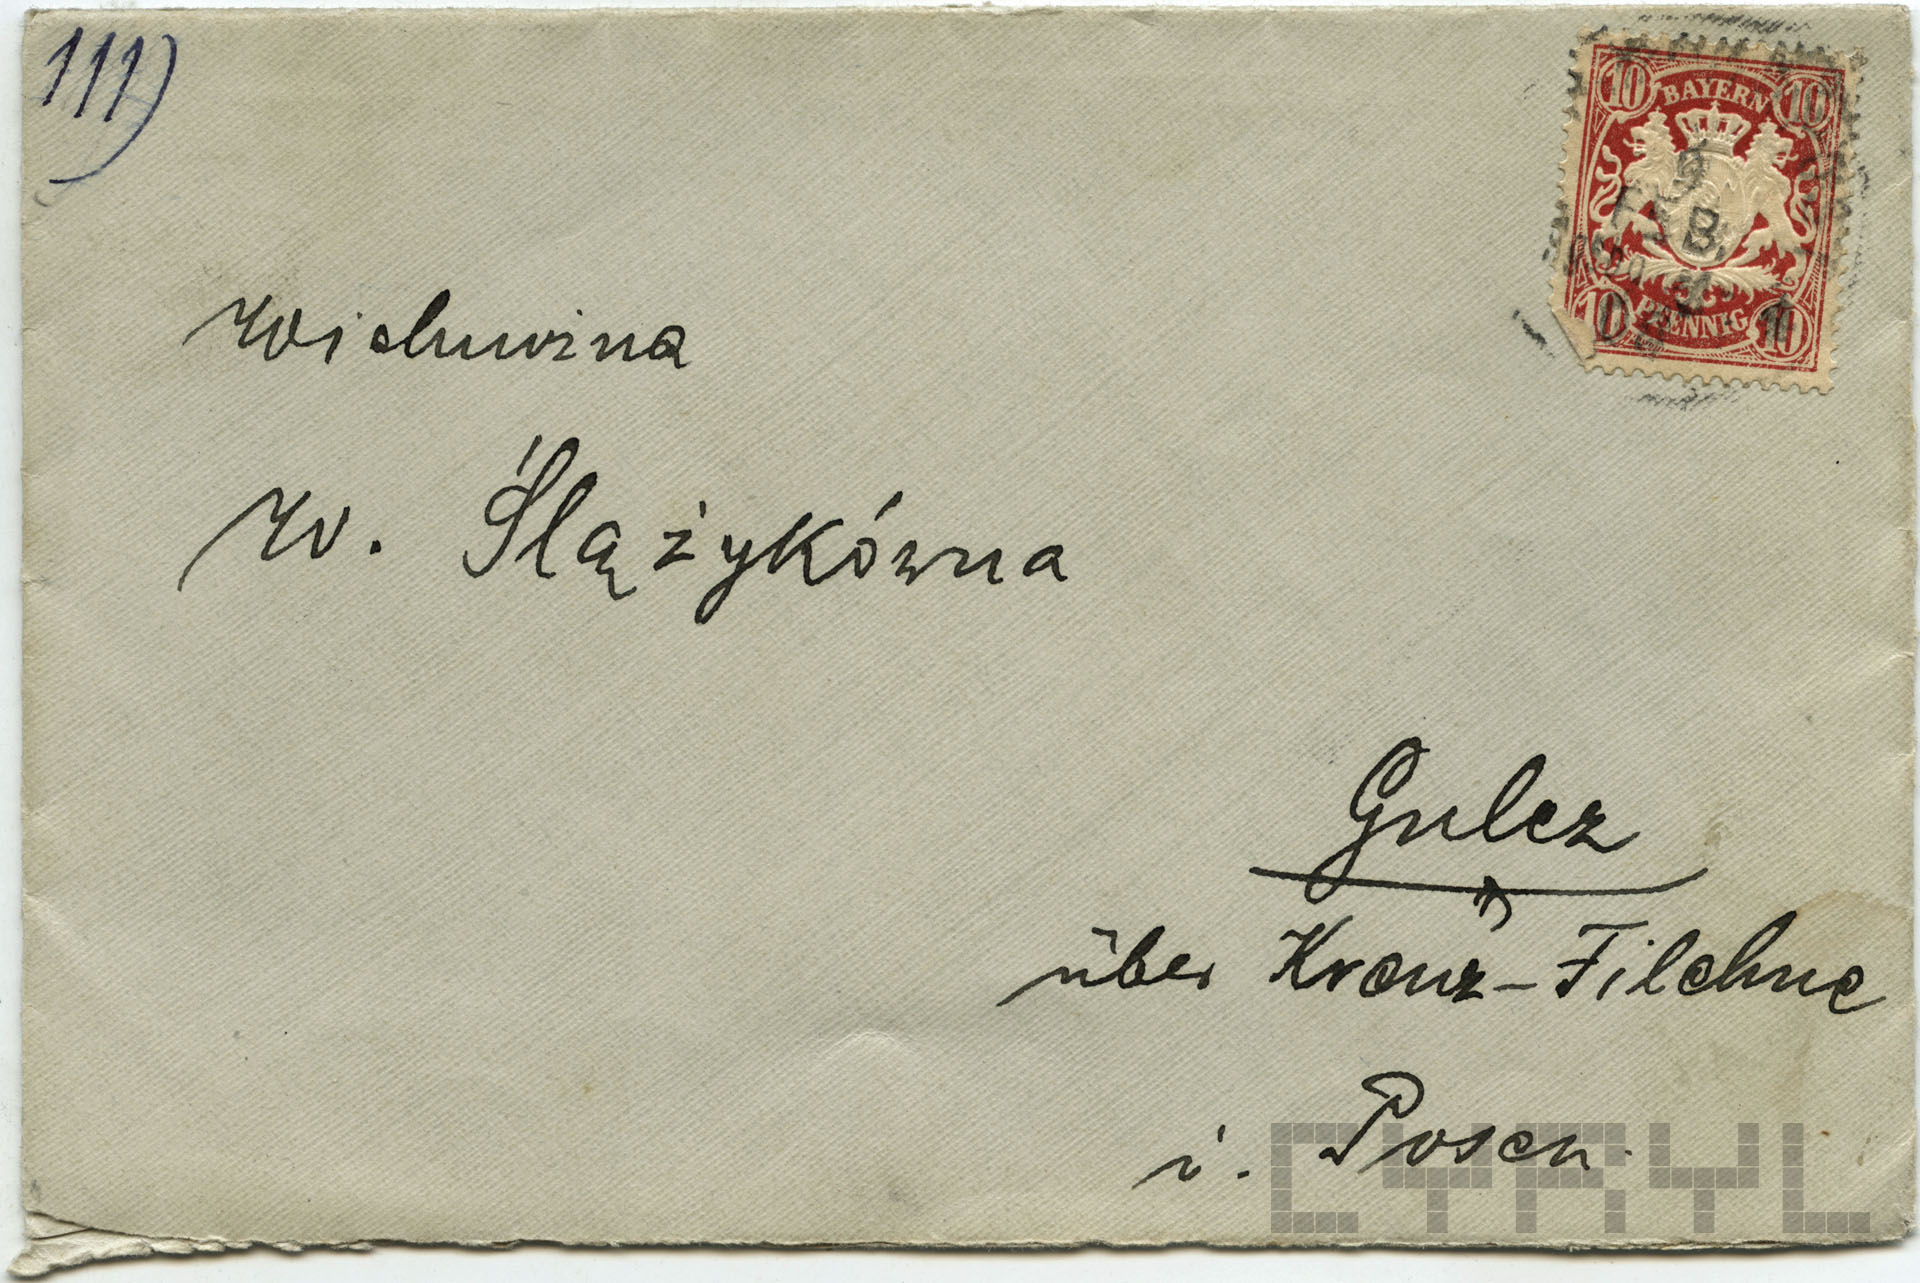 111)
10 BAYERN 10
9
B
10 PFENNIG 10
W. Ślążykówna
Gulcz
über Kreuz-Filehne
i. Posen.
CYRYL